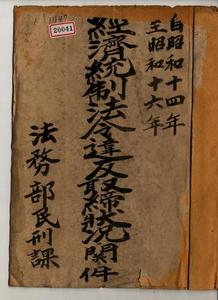 20041
自昭和十四年
至昭和十六年
經濟統制法令違反取締狀況關件
法務部民刑課